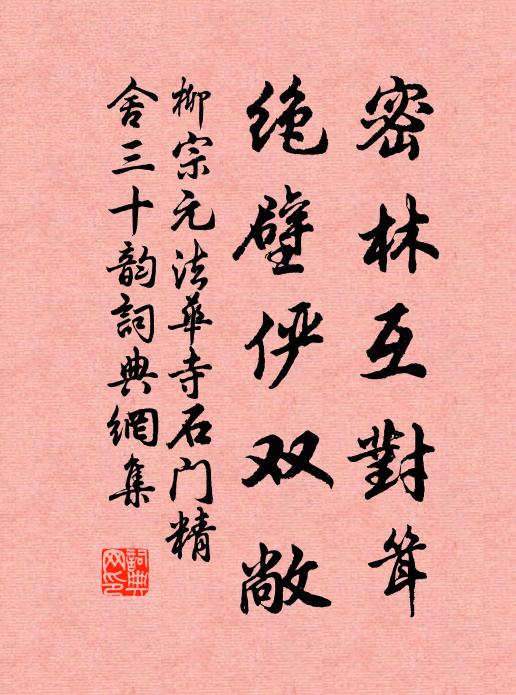 密林互對聳
绝壁俨双敞
柳宗元法華寺石门精
舍三十韵詞典網集
詞典网印